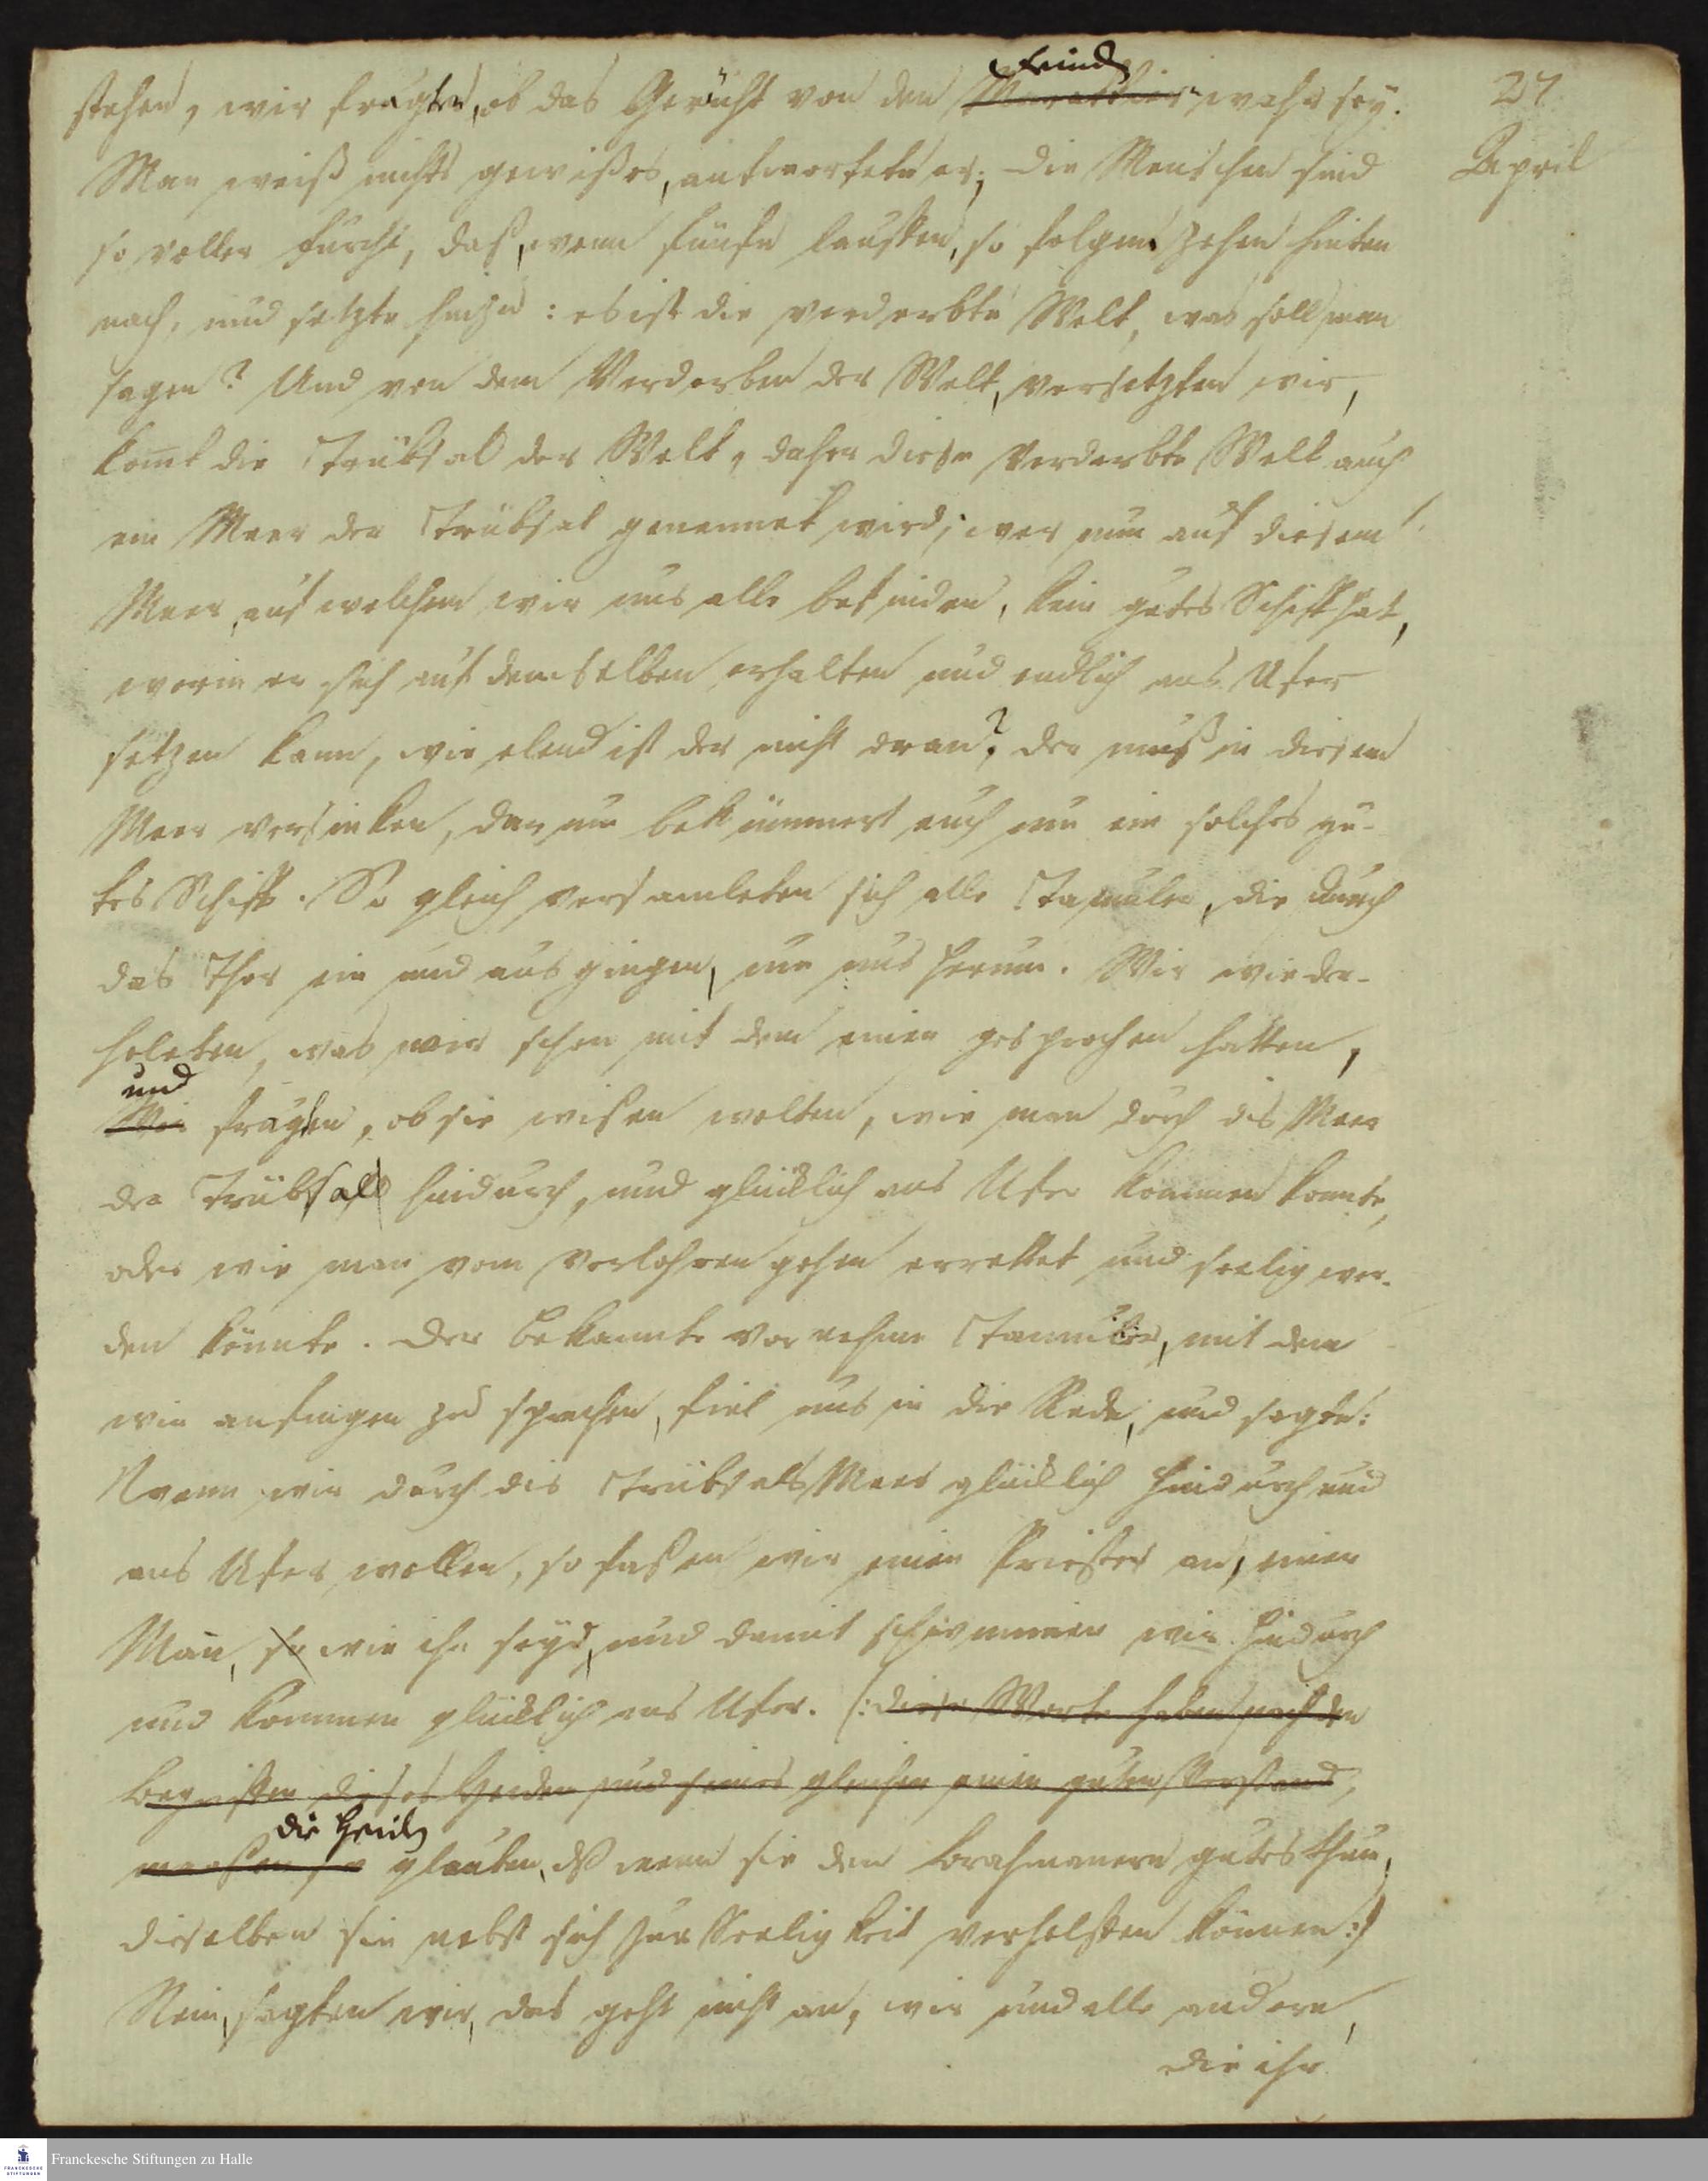 Feinden
stehen, wir fragten, ob das Gerücht von den Maratthier wahr sey. 27
Man weiß nichts gewißes, antwortete er; die Menschen sind April
so voller Furcht, daß, wenn fünfe lauffen, so folgen zehen hinten
nach, und setzte hinzu: es ist die verderbte Welt, was soll man
sagen? Und von dem Verderben der Welt, versetzten wir,
komt die Trübsal der Welt, daher diese verderbte Welt auch
ein Meer der Trübsal genennet wird; wer nun auf diesem
Meer, auf welchem wir uns alle befinden, kein gutes Schiff hat,
worin er sich auf demselben erhalten und endlich ans Ufer
setzen kann, wie elend ist der nicht dran? der muß in diesem
Meer versinken, darum bekümmert euch um ein solches gu-
tes Schiff. So gleich versamleten sich alle Tamuler, die durch
das Thor ein und aus gingen, um uns herum. Wir wieder-
holeten, was wir schon mit dem einen gesprochen hatten,
und
Wir fragten, ob sie wißen wolten, wie man durch dis Meer
der Trübsall hindurch, und glücklich ans Ufer kommen konte,
oder wie man vom verlohren gehen errettet und seelig wer-
den könnte. Der bekannte vornehme Tamuler, mit dem
wir anfingen zu sprechen, fiel uns in die Rede, und sagte:
Wenn wir durch dis Trübsals Meer glücklich hindurch und
ans Ufer wollen, so faßen wir einen Priester an, einen
Man, so wie ihr seyd, und damit schwimmen wir hindurch
und kommen glücklich ans Ufer. (: diese Worte haben nach den
Begriffen dieses Heiden und seines gleichen einen guten Verstand,
die Heiden
glauben, dß wenn sie den Brahmanern gutes thun,
dieselben sie nebst sich zur Seeligkeit verhelffen können:)
Nein, sagten wir, das geht nicht an, wir und alle andere,
die ihr
Franckesche Stiftungen zu Halle